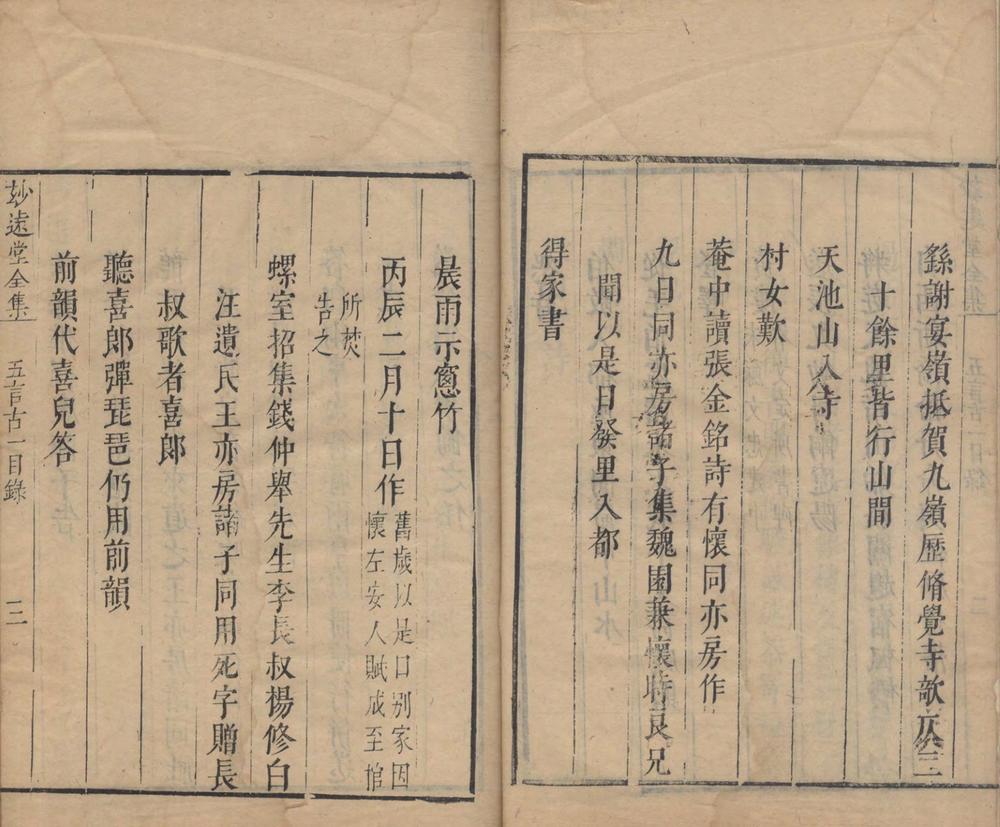 繇謝宴嶺抵賀九嶺歷脩覺寺欹仄三
十餘里皆行山間
天池山入寺
村女歎
菴中讀張金銘詩有懷同亦房作
九日同亦房諸子集魏園兼懷時良兄
聞以是日發里入都
得家書
晨雨示窻竹
丙辰二月十日作舊歲以是口別家因
懷左安人賦成至棺
所焚
告之
螺室招集錢仲舉先生李長叔楊修白
汪遺氏王亦房諸子同用死字贈長
叔歌者喜郎
聽喜郎彈琵琶仍用前韻
前韻代喜兒答
玅遠堂全集 五言古一目錄 三